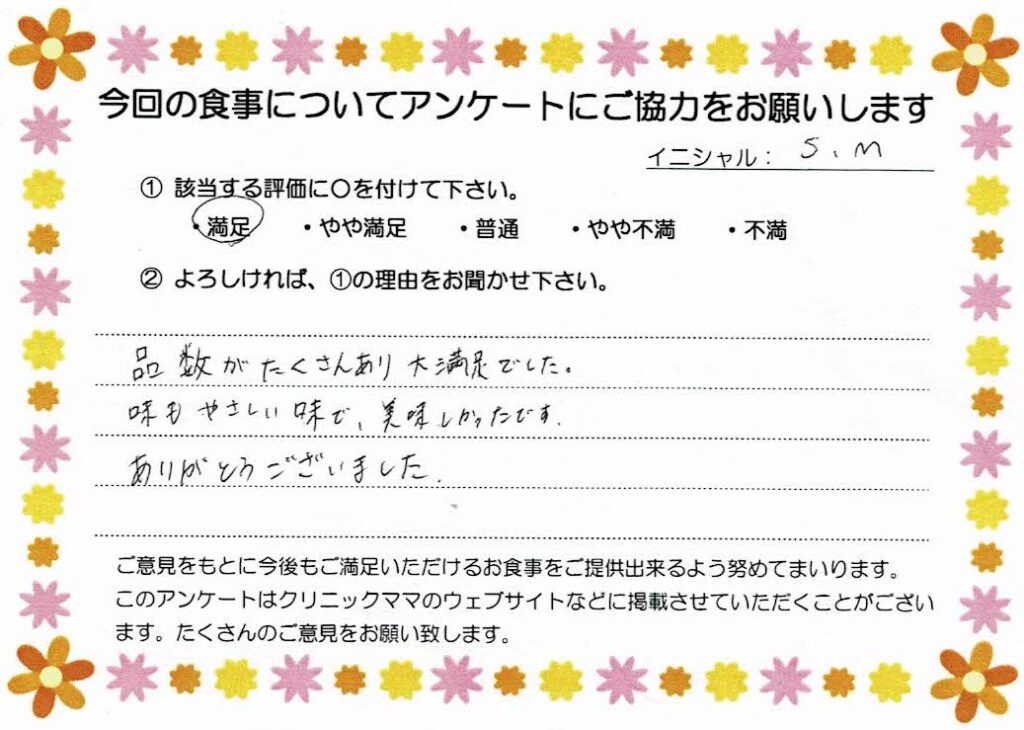 今回の食事についてアンケートにご協力をお願いします
イニシャル： S、M
① 該当する評価に〇を付けて下さい。
・満足 ・やや満足 ・普通 ・やや不満 ・不満
② よろしければ、①の理由をお聞かせ下さい。
品数がたくさんあり大満足でした。
味もやさしい味で、美味しかったです.
ありがとうございました.
ご意見をもとに今後もご満足いただけるお食事をご提供出来るよう努めてまいります。
このアンケートはクリニックママのウェブサイトなどに掲載させていただくことがござい
ます。たくさんのご意見をお願い致します。